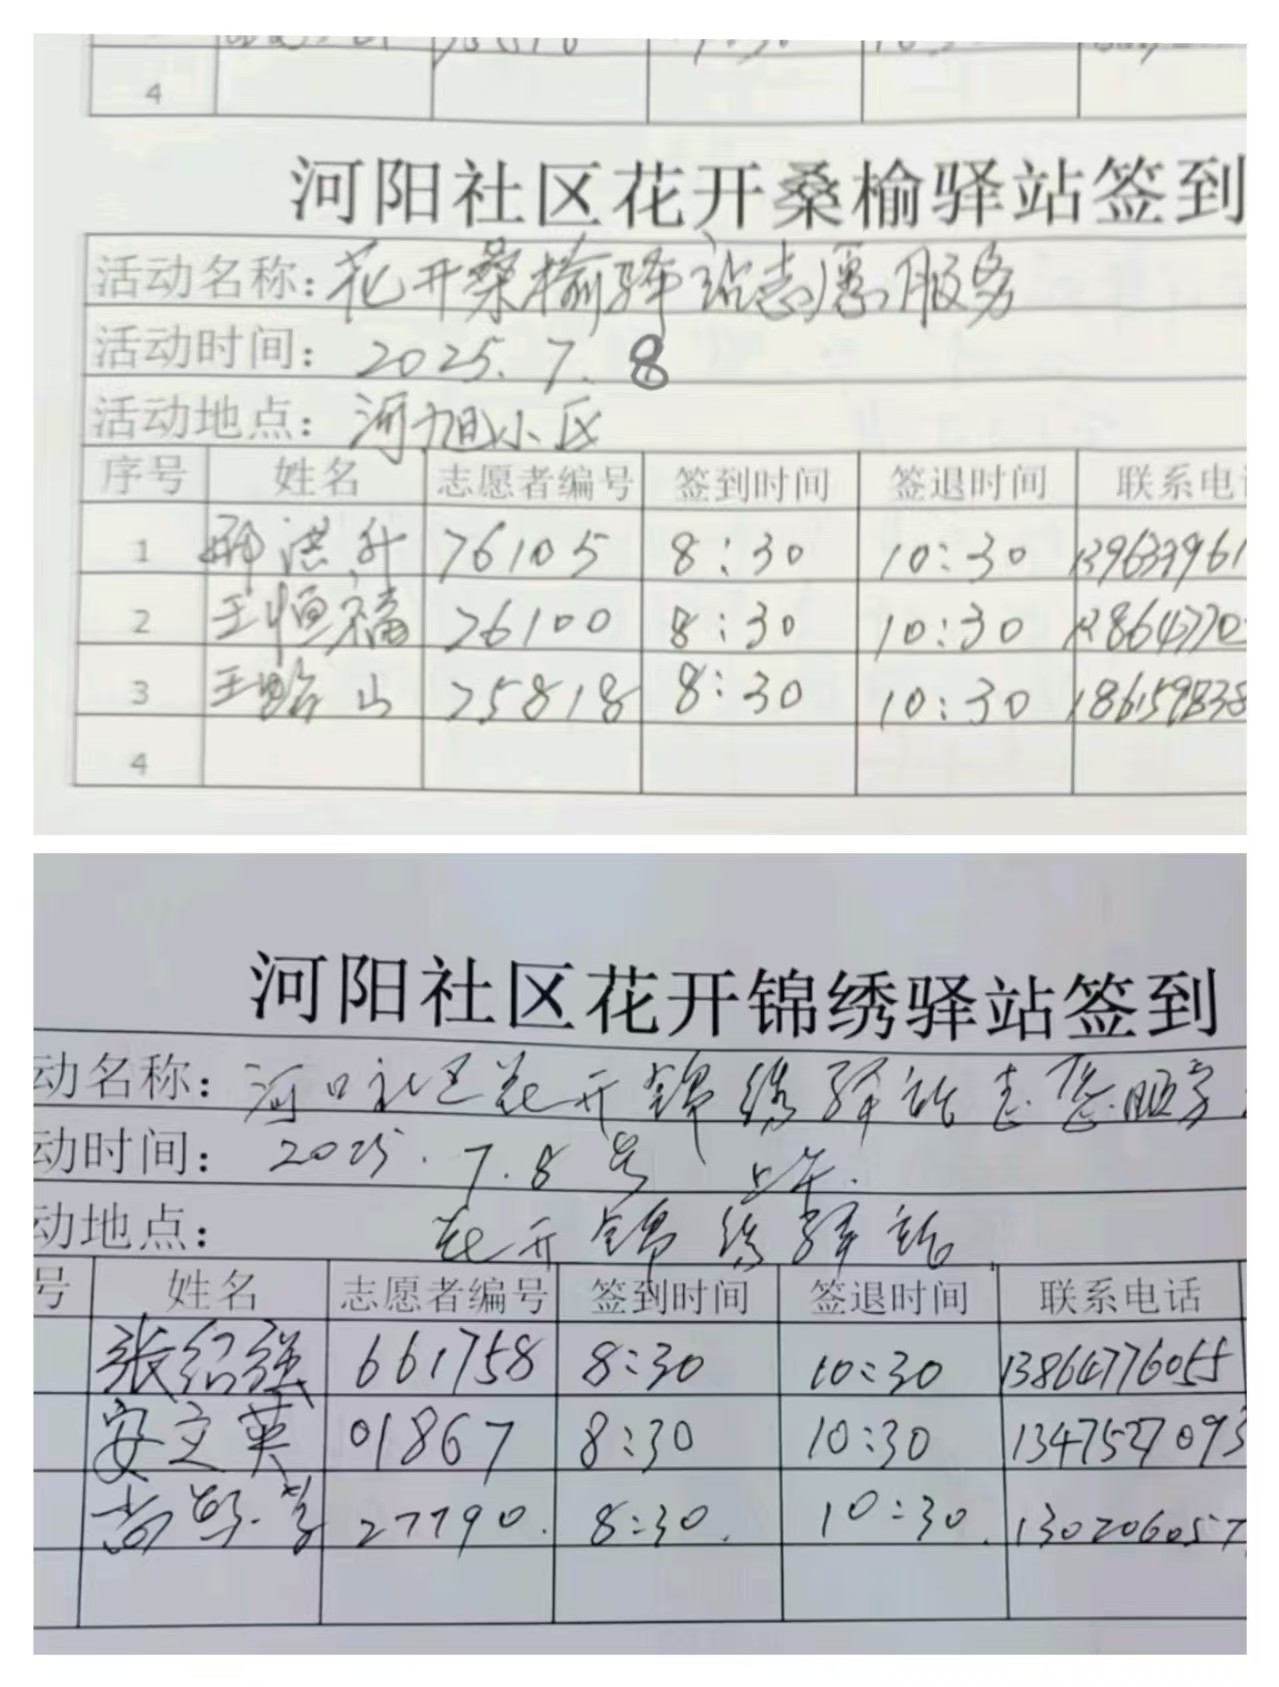 4
河阳社区花开桑榆驿站签到
活动名称：花开桑榆驿站志愿服务
活动时间：2025.7.8
活动地点：河旭小区
序号 姓名 志愿者编号 签到时间 签退时间 联系电
1 邢洪升 76105 8:30 10:30
2 王恒福 76100 8:30 10:30
3 王 山 25818 8:30 10:30
4
河阳社区花开锦绣驿站签到
动名称：河口社区花开锦绣驿站志愿服务
动时间：2025.7.8号 上午.
动地点：花开锦绣驿站
号 姓名 志愿者编号 签到时间 签退时间 联系电话
张绍强 661758 8:30 10:30 13864776055
安立英 01867 8:30 10:30 1347527093
27790. 8:30. 10:30. 130206057